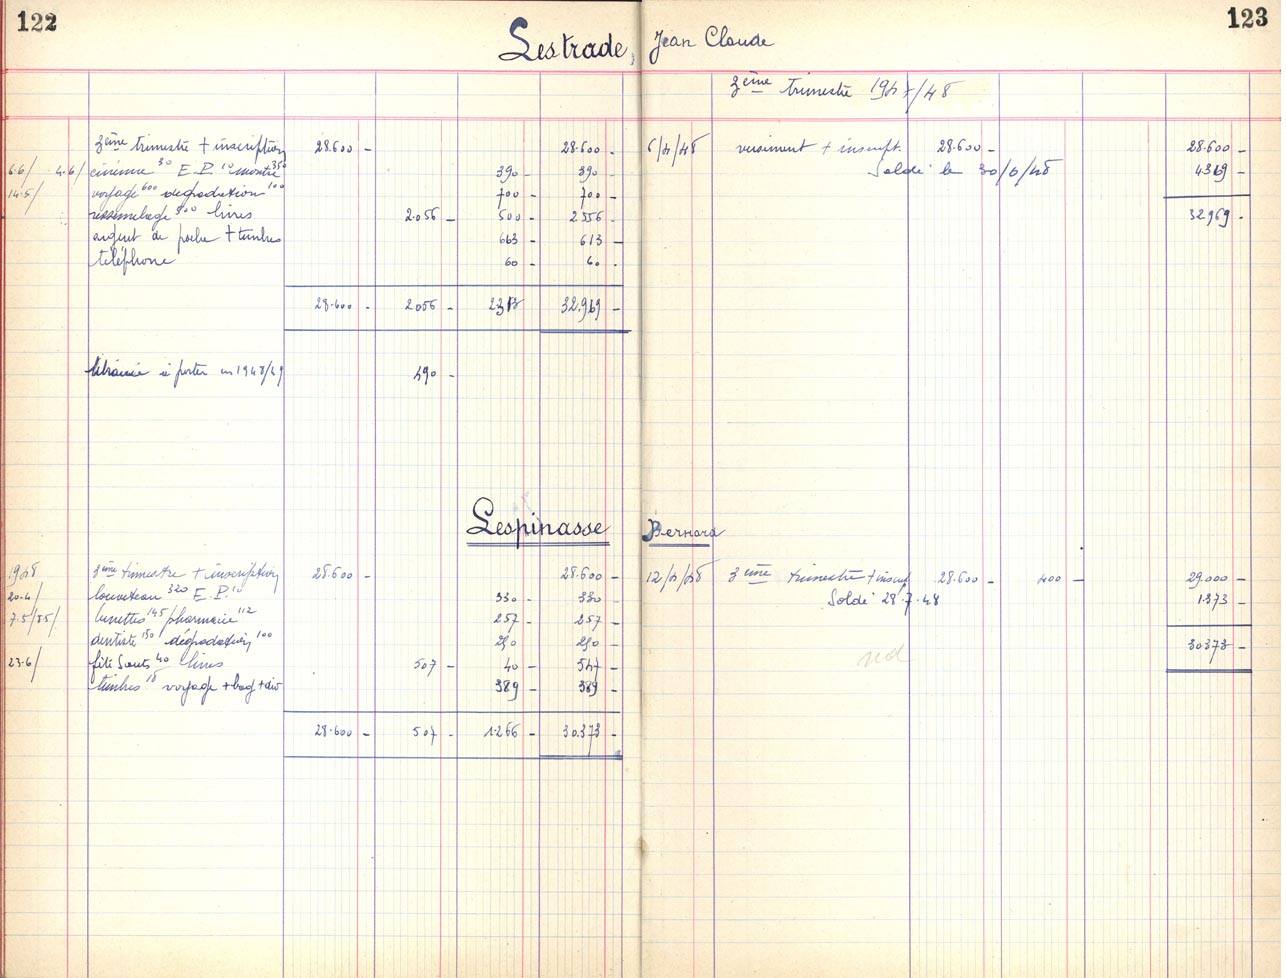 122
123
Lestrade, Jean Claude
3ème trimestre 1947/48
3ème trimestre + inscription 28.600 - 28.600 - 6/4/48 versiment + inscript. 28.600 - 28.600 -
6.6/ 4.6/ cinéma 30 E.P. 10 montre 350 390 - 390 - Soldé le 30/6/48 4369 -
14.5/ voyage 600 dégradation 100 700 - 700 -
ressemelage 500 livres 2.056 - 500 - 2556 - 32969 -
argent de poche + timbres 663 - 613 -
téléphone 60 - 60 -
28.600 - 2056 - 2313 32.969 -
librairie à porter en 1948/49 490 -
Lespinasse Bernard
1948 3ème trimestre + inscription 28.600 - 28.600 - 12/4/48 3ème trimestre + inscript 28.600 - 400 - 29.000 -
20.4/ louveteau 320 E.P. 10 330 - 330 - Soldé 28.7.48 1.373 -
7.5/ lunettes 145 / pharmacie 112 257 - 257 -
dentiste 150 dégradation 100 250 - 250 - 30373 -
23.6/ fête Scouts 40 livres 507 - 40 - 547 -
timbres 18 voyage + bag + div 389 - 389 -
28.600 - 507 - 1.266 - 30.373 -